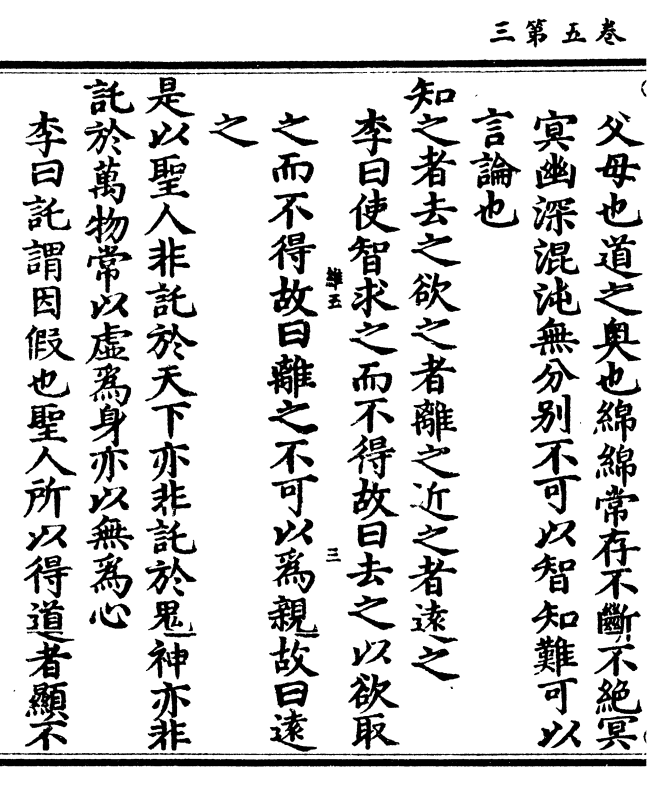 卷五第三
父母也道之奧也綿綿常存不斷不絕冥
冥幽深混沌無分别不可以智知難可以
言論也
知之者去之欲之者離之近之者遠之
李曰使智求之而不得故曰去之以欲取
維五 三
之而不得故曰離之不可以爲親故曰遠
之
是以聖人非託於天下亦非託於鬼神亦非
託於萬物常以虛爲身亦以無爲心
李曰託謂因假也聖人所以得道者顯不